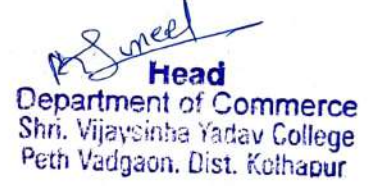 Head
Department of Commerce
Shri. Vijaysinha Yadav College
Peth Vadgaon. Dist. Kolhapur